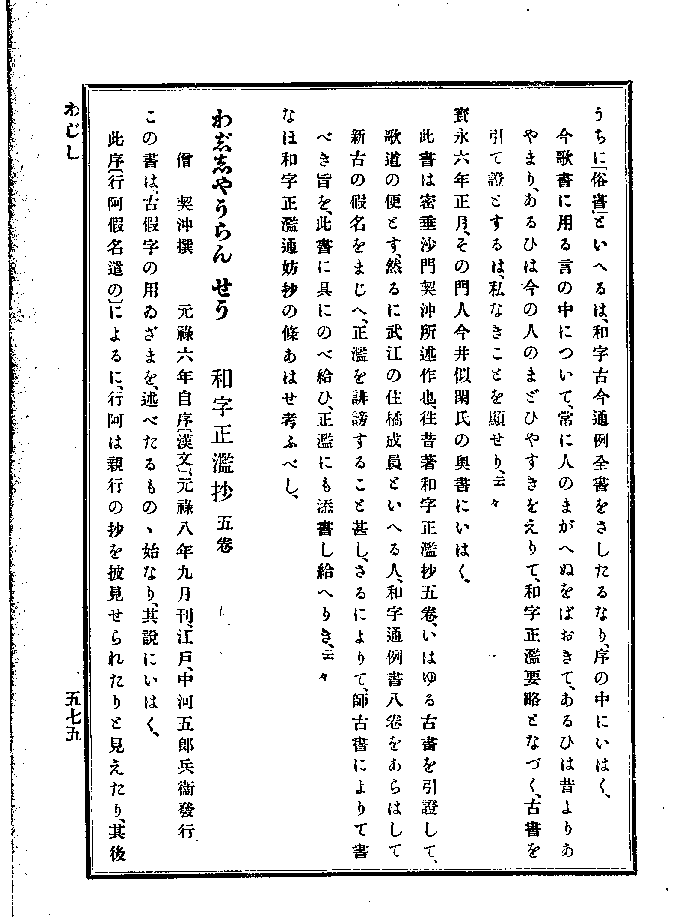 うちに「俗書」といへるは、和字古今通例全書をさしたるなり、序の中にいはく、
今歌書に用る言の中について、常に人のまがへぬをばおきて、あるひは昔よりあ
やまり、あるひは今の人のまどひやすきをえりて、和字正濫要略となづく、古書を
引て證とするは、私なきことを顯せり、云々
寳永六年正月、その門人今井似閑氏の奥書にいはく、
此書は密乘沙門契沖所述作也、往昔著和字正濫抄五卷、いはゆる古書を引證して、
歌道の便とす、然るに武江の住橘成員といへる人、和字通例書八卷をあらはして
新古の假名をまじへ、正濫を誹謗すること甚し、さるによりて、師古書によりて書
べき旨を、此書に具にのべ給ひ、正濫にも添書し給へりき、云々
なほ和字正濫通妨抄の條あはせ考ふべし、
わじしやうらんせう 和字正濫抄 五卷
僧 契沖撰 元祿六年自序「漢文」、元祿八年九月刊、江戸、中河五郎兵衞發行
この書は、古假字の用ゐざまを、述べたるものゝ始なり、其說にいはく、
此序「行阿假名遣の」によるに、行阿は親行の抄を披見せられたりと見えたり、其後
わじし
五七五